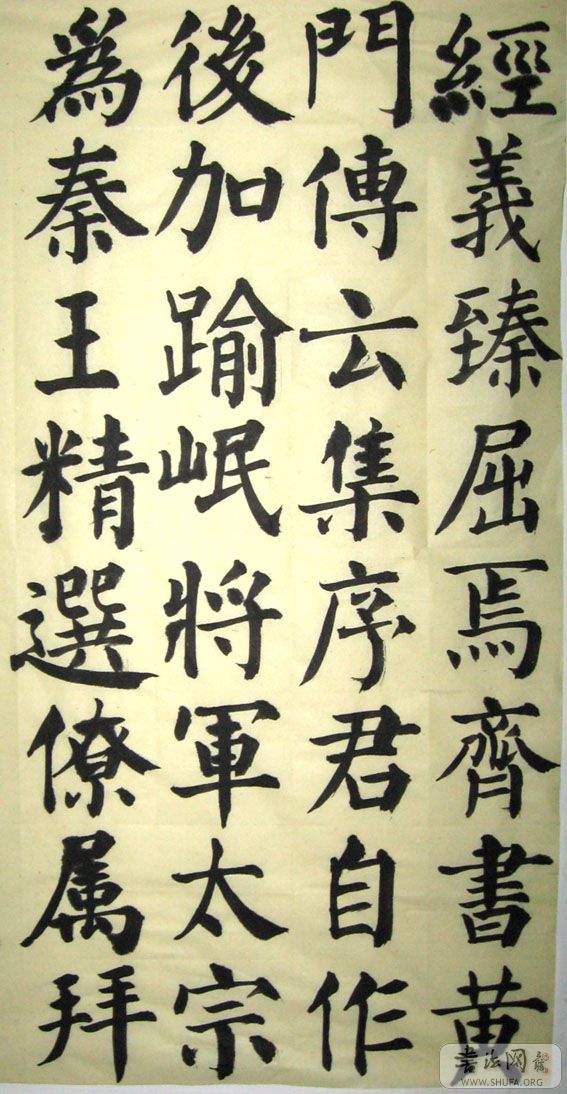 經義臻屈焉齊書黄
門傳云集序君自作
後加踰岷將軍太宗
為秦王精選僚属拜
书法网
WWW.SHUFA.ORG